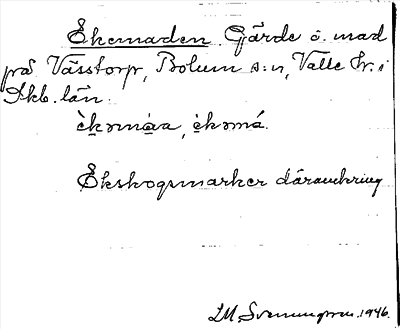 Ekemaden Gärde o. mad
på Vässtorp, Bolum s:n, Valle hr. i
Skb. län.
èkəmáa, èkəmá.
Ekskogsmarker däromkring
LM. Svenungsson. 1946.